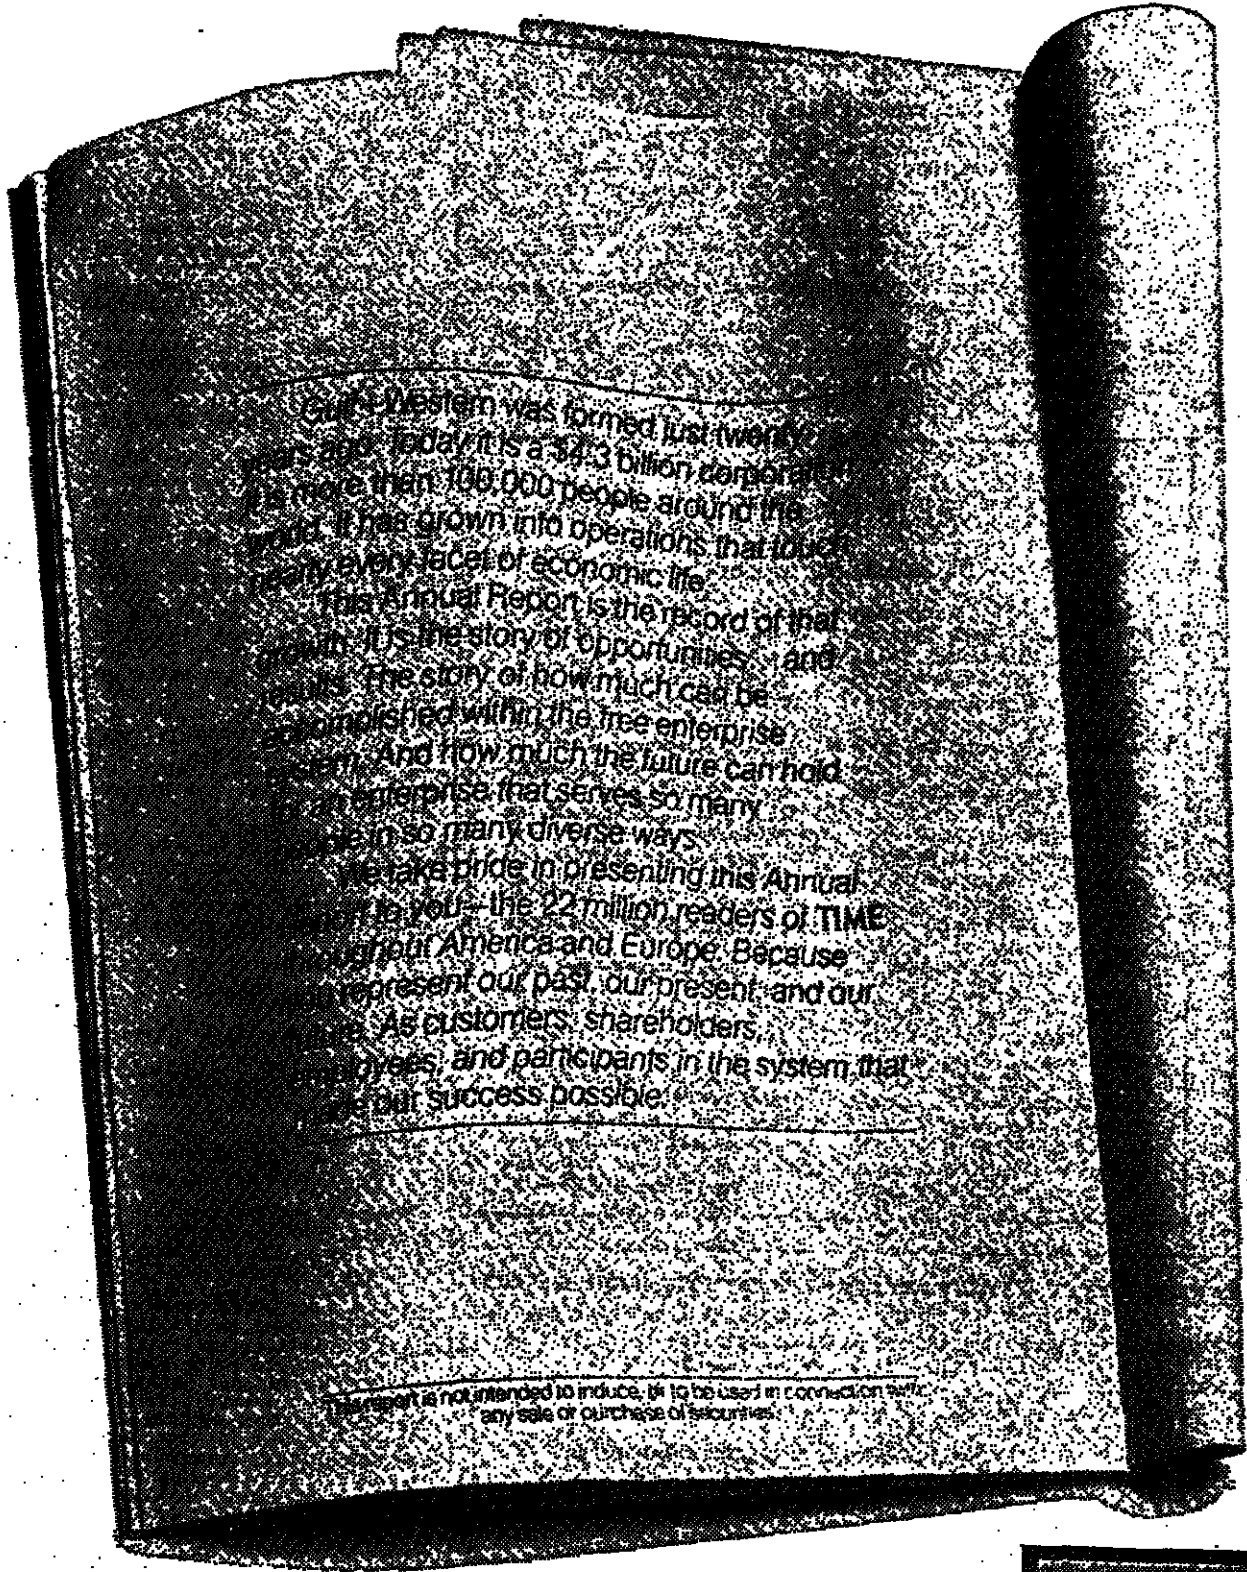 Gulf+Western was formed just twenty
years ago. Today it is a $4.3 billion corporation.
It is more than 100,000 people around the
world. It has grown into operations that touch
nearly every facet of economic life.
This Annual Report is the record of that
growth. It is the story of opportunities... and
results. The story of how much can be
accomplished within the free enterprise
system. And how much the future can hold
for an enterprise that serves so many
people in so many diverse ways.
We take pride in presenting this Annual
Report to you—the 22 million readers of TIME
throughout America and Europe. Because
you represent our past, our present, and our
future. As customers, shareholders,
employees, and participants in the system that
our success possible.
This report is not intended to induce, or to be used in connection with,
any sale or purchase of securities.